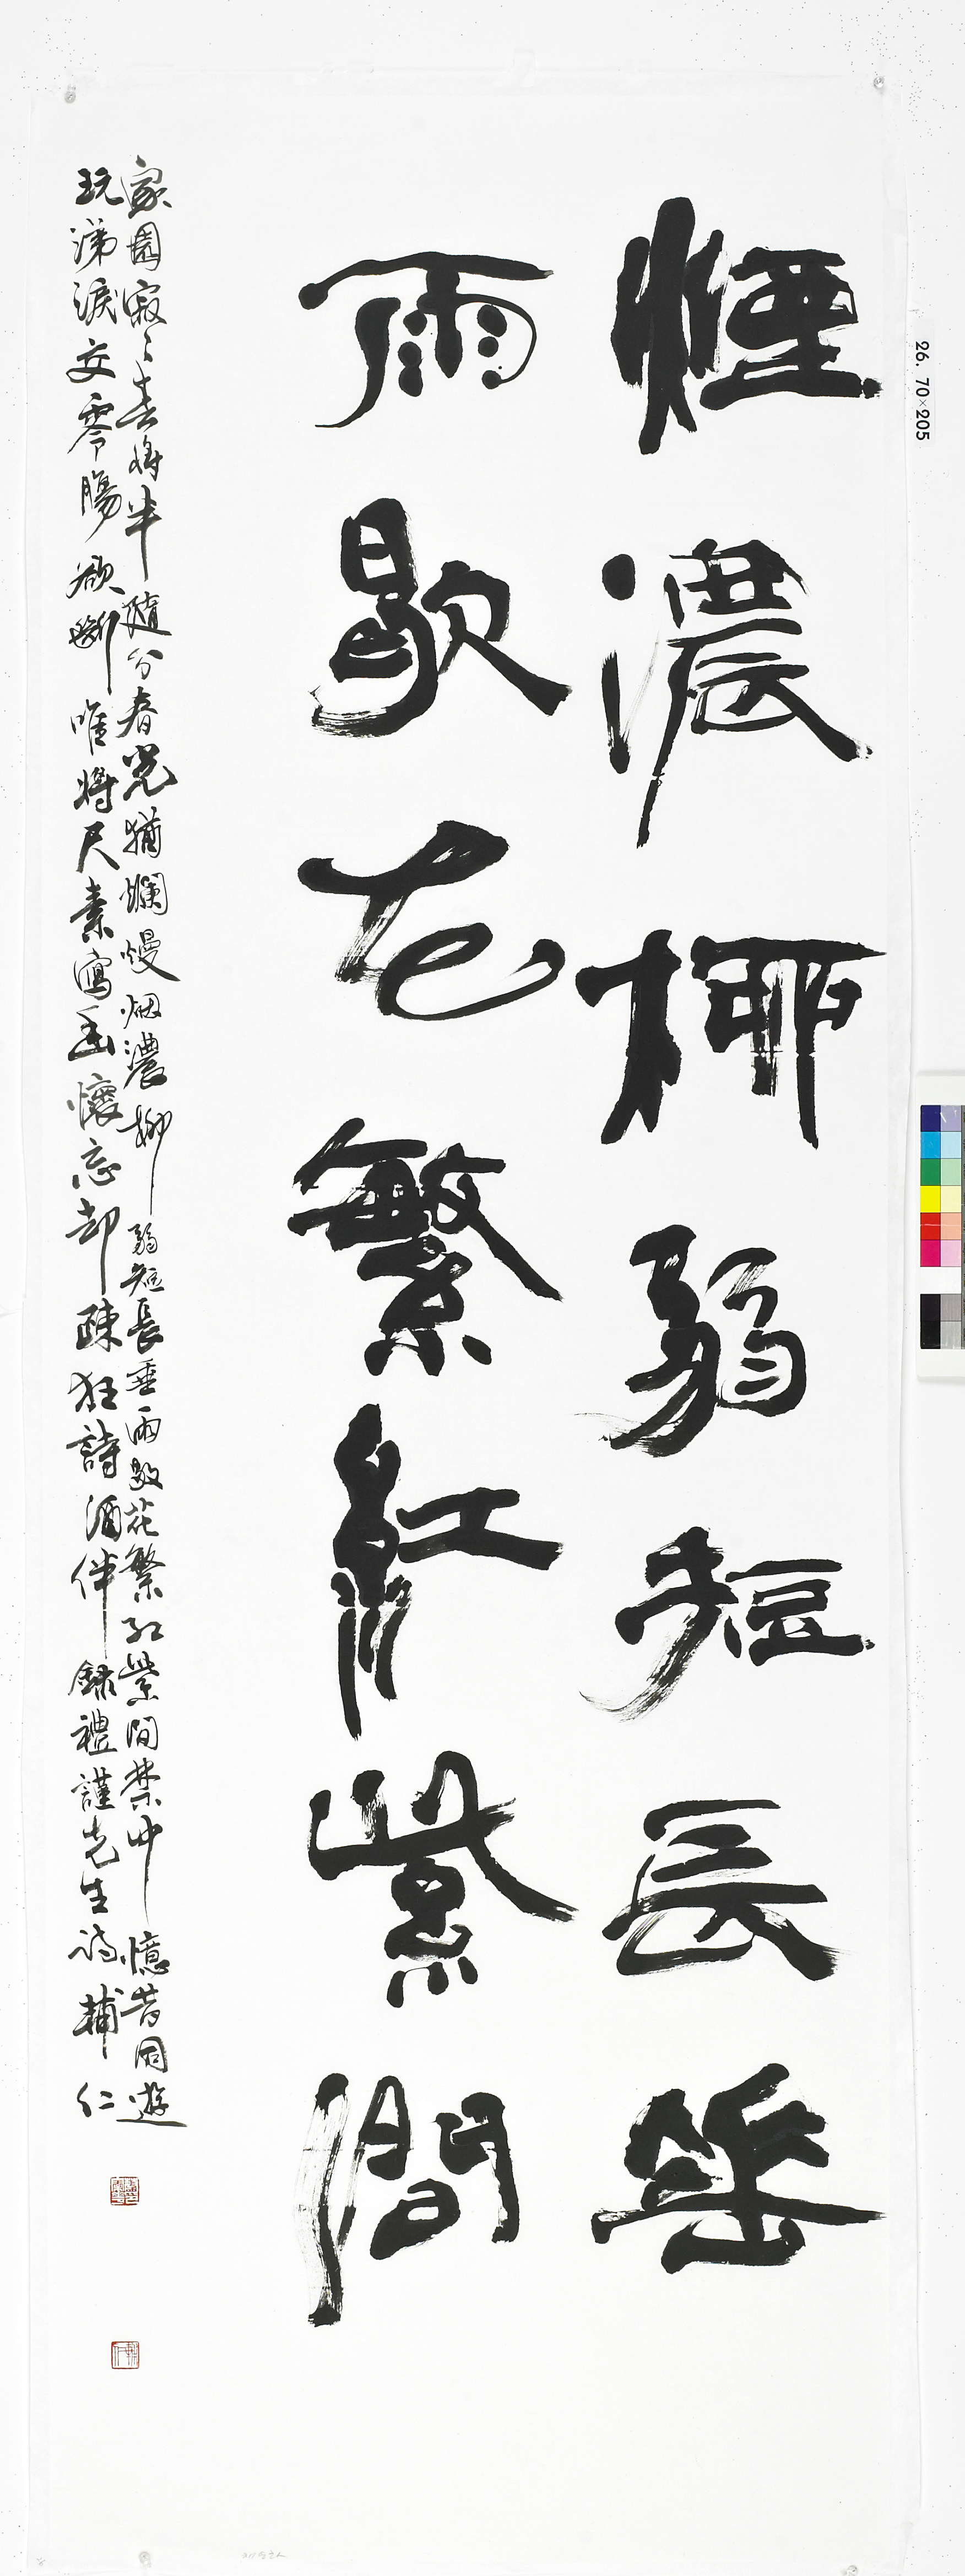 煙濃柳弱短長垂
雨歇花繁紅紫間
家園寂〻春將半隨分春光猶爛熳烟濃柳弱短長垂雨歇花繁紅紫間禁中憶昔同遊
玩涕淚交零腸欲斷唯將尺素寫幽懷忘却疎狂詩酒伴錄禮謹先生詩輔仁
26. 70×205